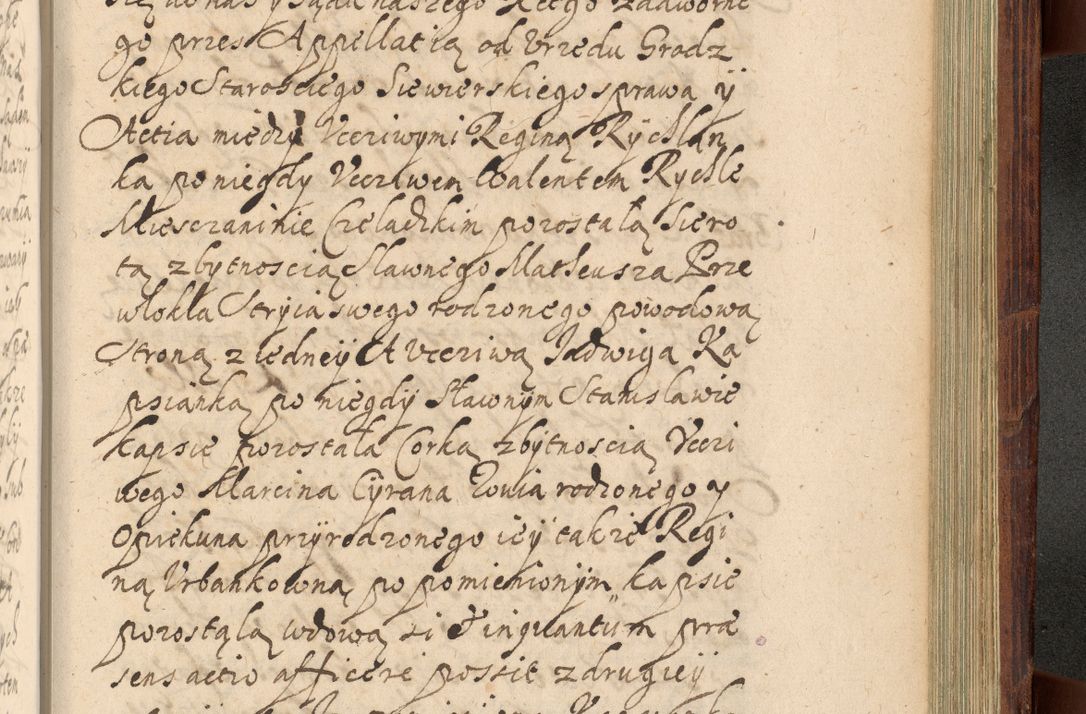 się do nas y sądu naszego Xcego zadworne
go przes Appellatią od Vrzędu Grodz
kiego Starosciego Siewierskiego sprawa y
Actia między Vccziwymi Reginą Rychlan
ka po niegdy Vccziwem Walentem Rychle
Miesczaninie Czeladzkim pozostałą Siero
tą z bytnoscią Sławnego Matheusza Prze
włokła Stryia swego rodzonego powodową
Stroną z iedneÿ A Vccziwą Jadwiga Ka
psianką po niegdÿ Sławnÿm Stanisławie
kapsie pozostała Corką z bÿtnoscią Vcczi
wego Marcina Cÿrana Wuia rodzonego y
Opiekuna przÿrodzonego ieÿ takze Regi
ną Vrbankowną po pomienionÿm kapsie
pozostąlą wdową si & inquantum præ
sens actio afficere possit z drugieÿ